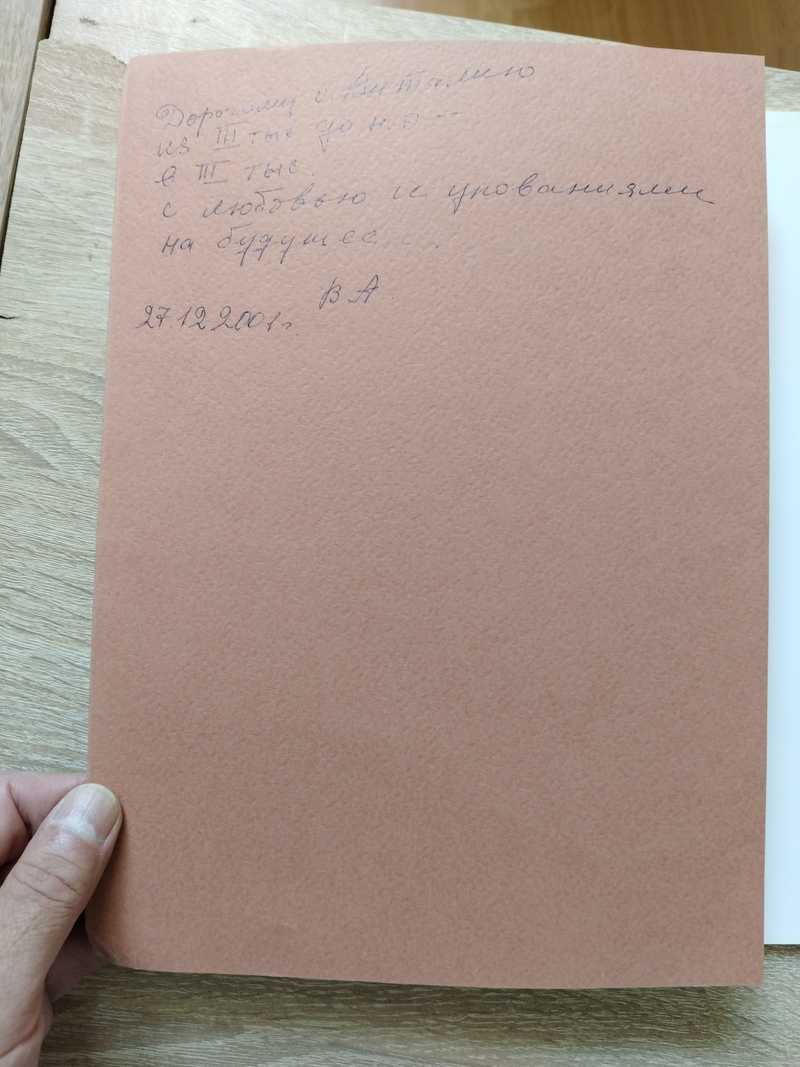 Дорогому Виталию
из III тыс до н.э —
в III тыс.
с любовью и упованиями
на будущее...
ВА
27.12.2001 г.